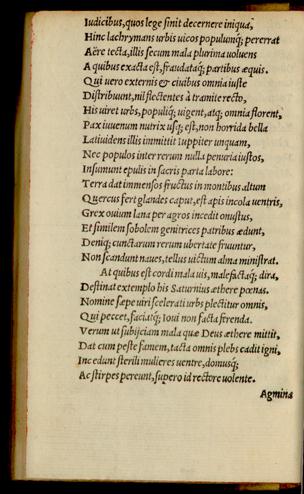 Iudicibus, quos lege sinit decernere iniqua,
Hinc lachrymans urbis uicos populumq; pererrat
Aëre tecta, illis secum mala plurima uoluens
A quibus exacta est, fraudataq; partibus æquis.
Qui uero externis & ciuibus omnia iuste
Distribuunt, nil flectentes à tramite recto,
His uiret urbs, populiq; uigent, atq; omnia florent,
Pax iuuenum nutrix usq; est, non horrida bella
Latiuidens illis immittit Iuppiter unquam,
Nec populos inter rerum nulla penuria iustos,
Insumunt epulis in sacris parta labore:
Terra dat immensos fructus in montibus altum
Quercus fert glandes caput, est apis incola uentris,
Grex ouium lana per agros incedit onustus,
Et similem sobolem genitrices patribus ædunt,
Deniq; cunctarum rerum ubertate fruuntur,
Non scandunt naues, tellus uictum alma ministrat.
At quibus est cordi mala uis, malefactaq; dira,
Destinat extemplo his Saturnius æthere pœnas.
Nomine sæpe uiri scelerati urbs plectitur omnis,
Qui peccet, faciatq; Ioui non facta ferenda.
Verum ut subijciam mala quæ Deus æthere mittit,
Dat cum peste famem, tacta omnis plebs cadit igni,
Incedunt sterili mulieres uentre, domusq;
Ac stirpes pereunt, supero id rectore uolente.
Agmina